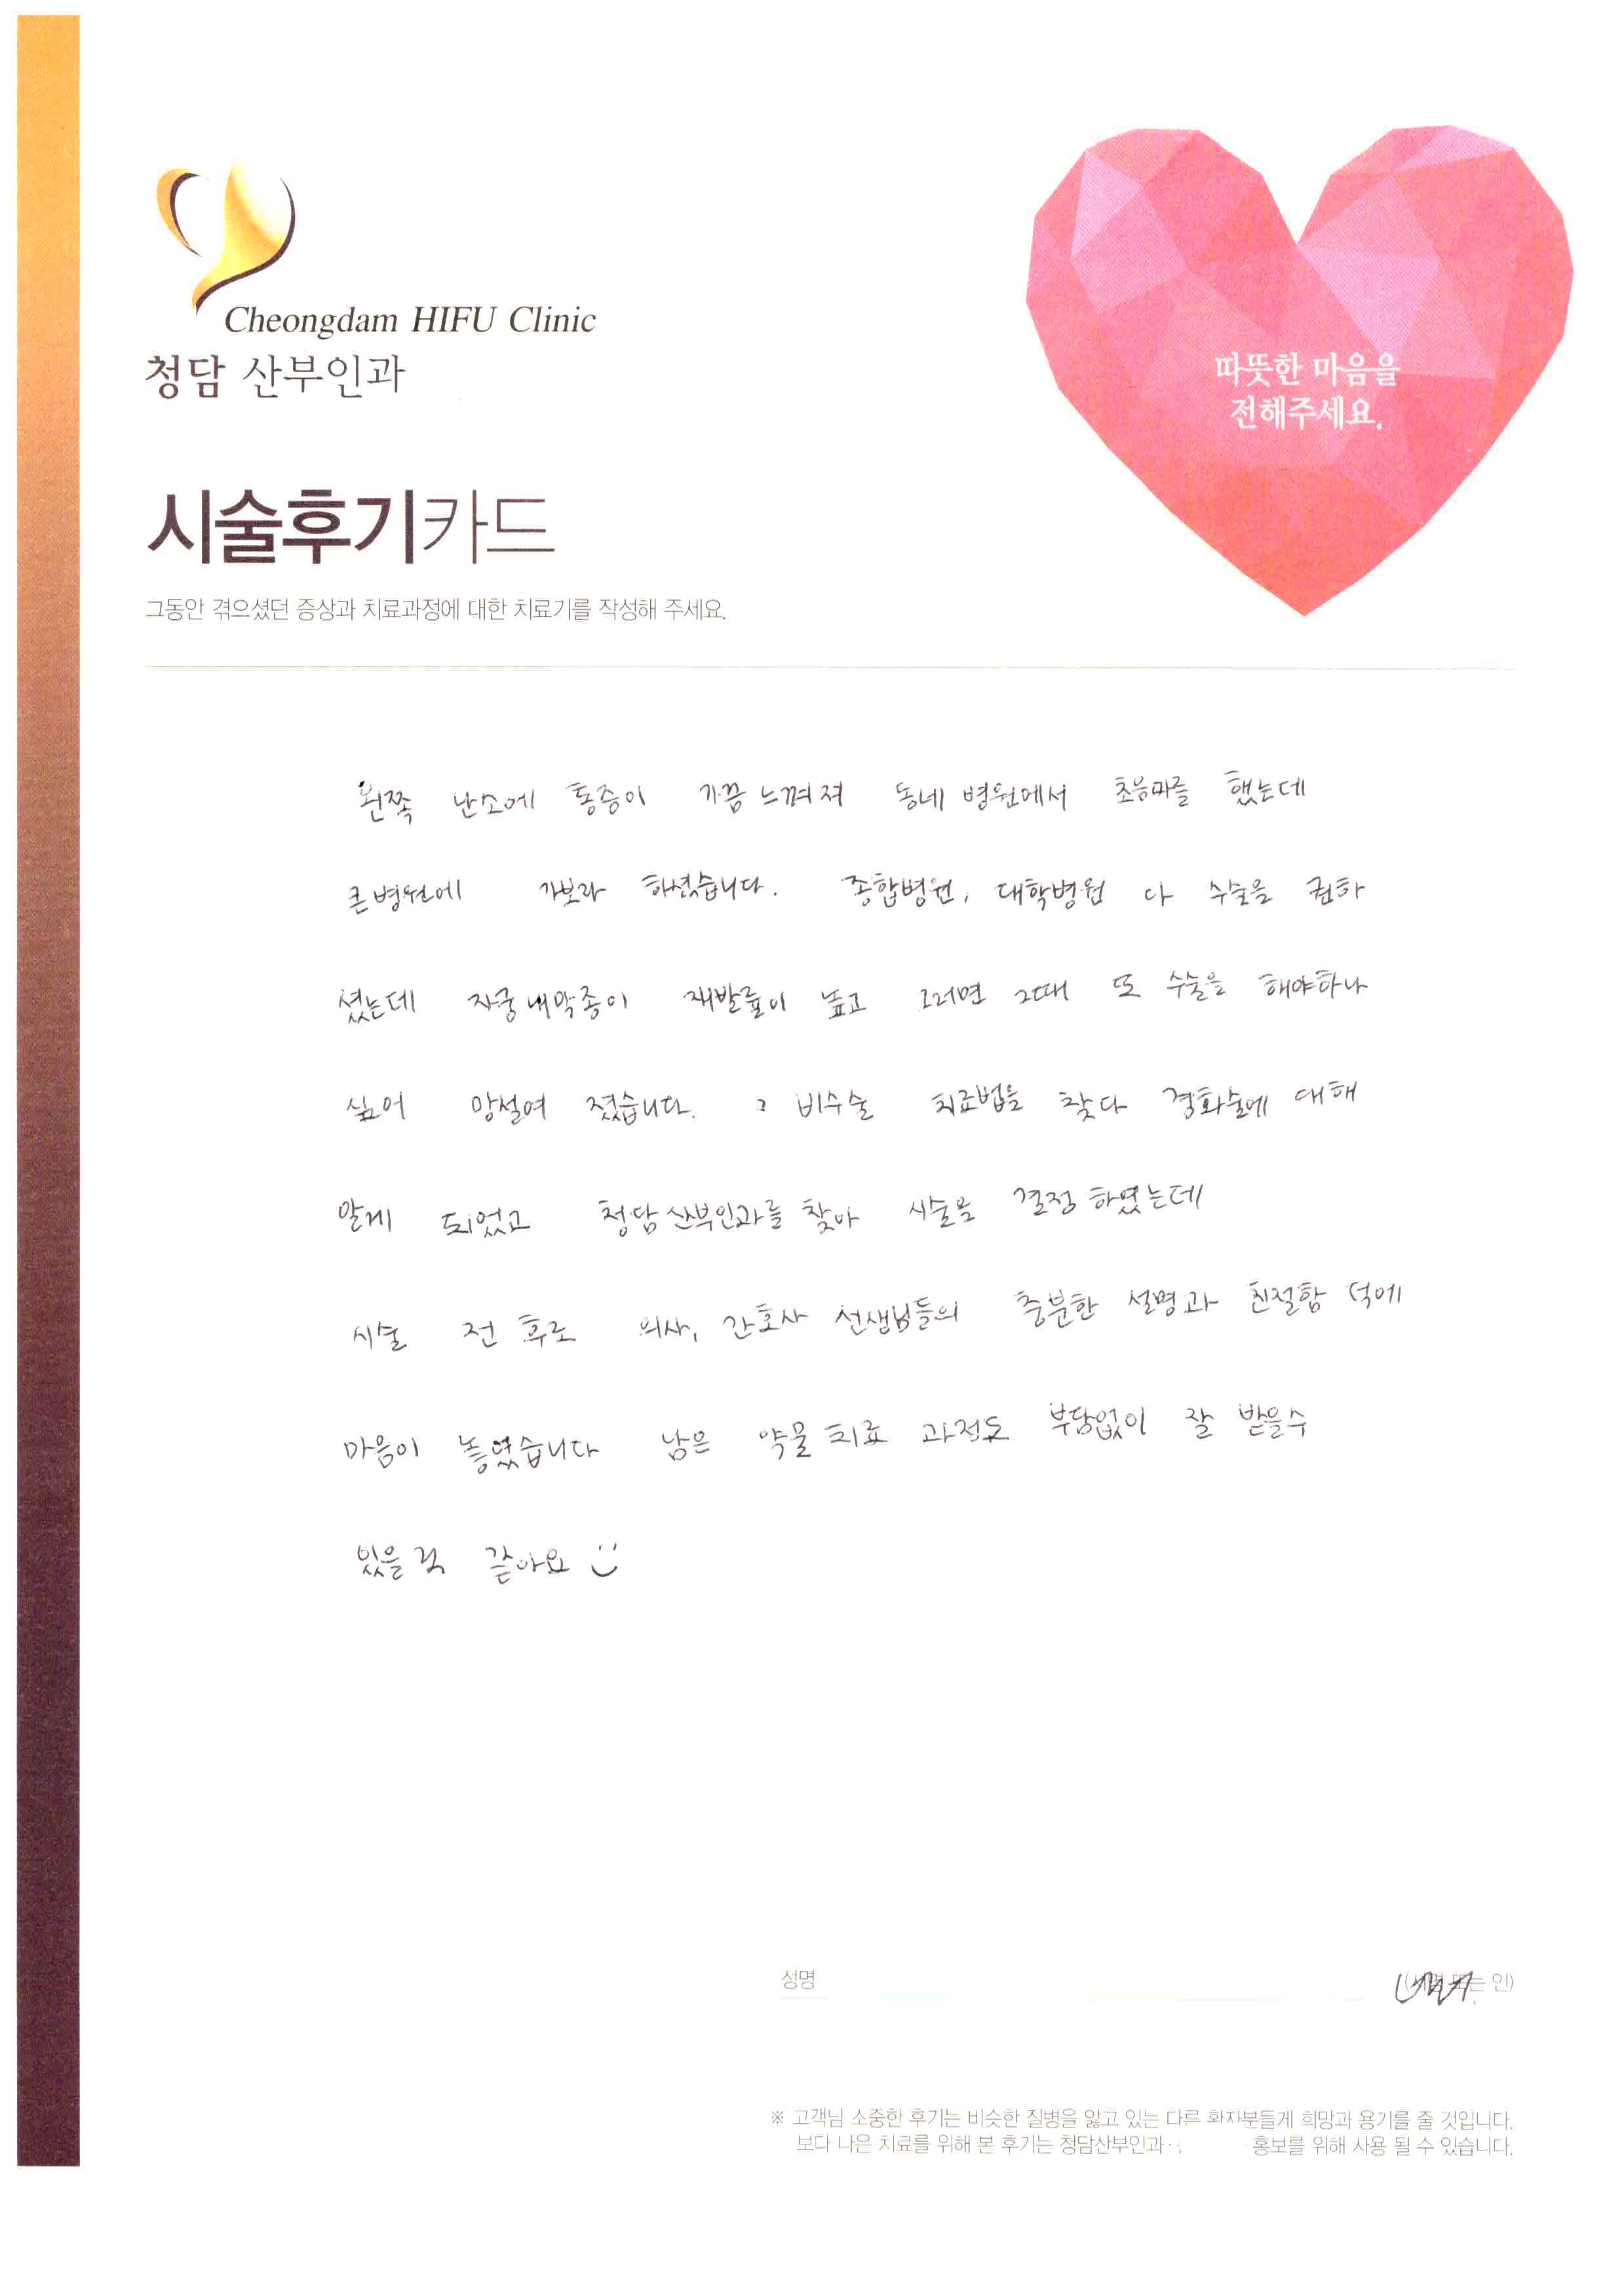 Cheongdam HIFU Clinic
청담 산부인과
따뜻한 마음을
전해주세요.
시술후기카드
그동안 겪으셨던 증상과 치료과정에 대한 치료기를 작성해 주세요.
왼쪽 난소에 통증이 가끔 느껴져 동네 병원에서 초음파를 했는데
큰 병원에 가보라 하셨습니다. 종합병원, 대학병원 다 수술을 권하
셨는데 자궁내막종이 재발률이 높고 그러면 그때 또 수술을 해야하나
싶어 망설여 졌습니다. 비수술 치료법을 찾다 경화술에 대해
알게 되었고 청담산부인과를 찾아 시술을 결정 하였는데
시술 전 후로 의사, 간호사 선생님들의 충분한 설명과 친절함 덕에
마음이 놓였습니다 남은 약물 치료 과정도 부담없이 잘 받을수
있을 것 같아요
성명 는 인)
※ 고객님 소중한 후기는 비슷한 질병을 앓고 있는 다른 환자분들게 희망과 용기를 줄 것입니다.
보다 나은 치료를 위해 본 후기는 청담산부인과 홍보를 위해 사용 될 수 있습니다.